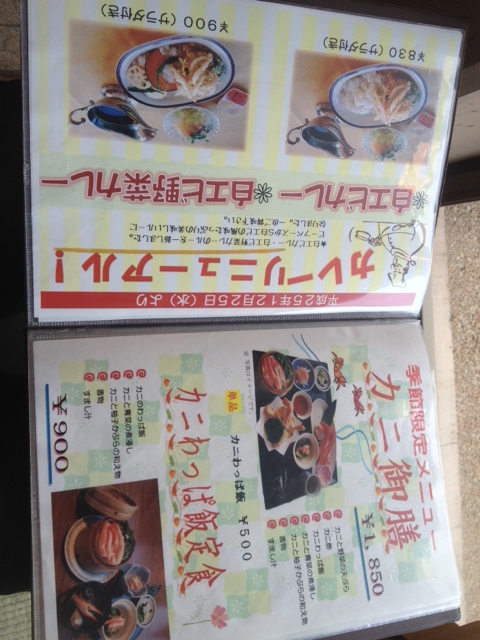 平成25年12月25日(水)より
カレーリニューアル!
★白エビカレー・白エビ野菜カレーのルーを一新しました。
ビーフベースから白エビの風味たっぷりの美味しいルーに
なりました。一度ご賞味下さい。
❋白エビカレー ❋白エビ野菜カレー
¥830(サラダ付き)
¥900(サラダ付き)
季節限定メニュー
カニ御膳
¥1,850
カニと野菜の天ぷら
カニ酢
カニわっぱ飯
カニと青菜の煮浸し
カニと柚子かぶらの和え物
香物
すまし汁
※ 写真はイメージです。
単品 カニわっぱ飯 ¥500
カニわっぱ飯定食
カニのわっぱ飯
カニと青菜の煮浸し
カニと柚子かぶらの和え物
香物
すまし汁
¥900